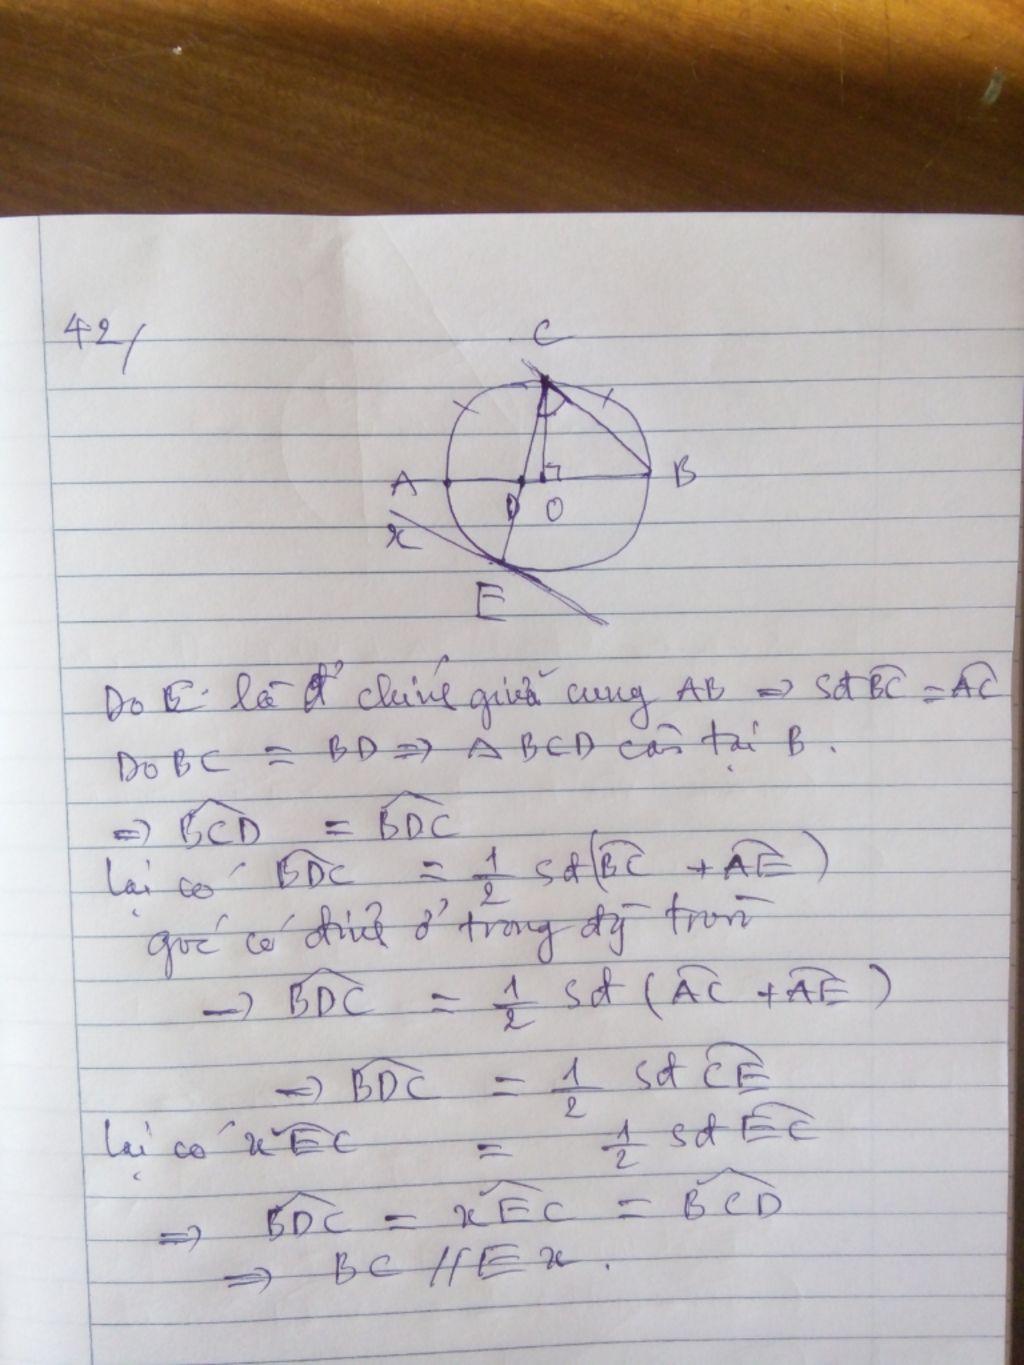 42/
C
A
B
D
O
x
E
Do E là đ' chính giữa cung AB => sđ BC = AC
Do BC = BD => Δ BCD cân tại B.
=> BCD = BDC
lại có BDC = 1/2 sđ (BC + AE)
góc có đỉnh ở trong đg tròn
-> BDC = 1/2 sđ (AC + AE)
=> BDC = 1/2 sđ CE
lại có xEC = 1/2 sđ EC
=> BDC = xEC = BCD
=> BC // Ex.